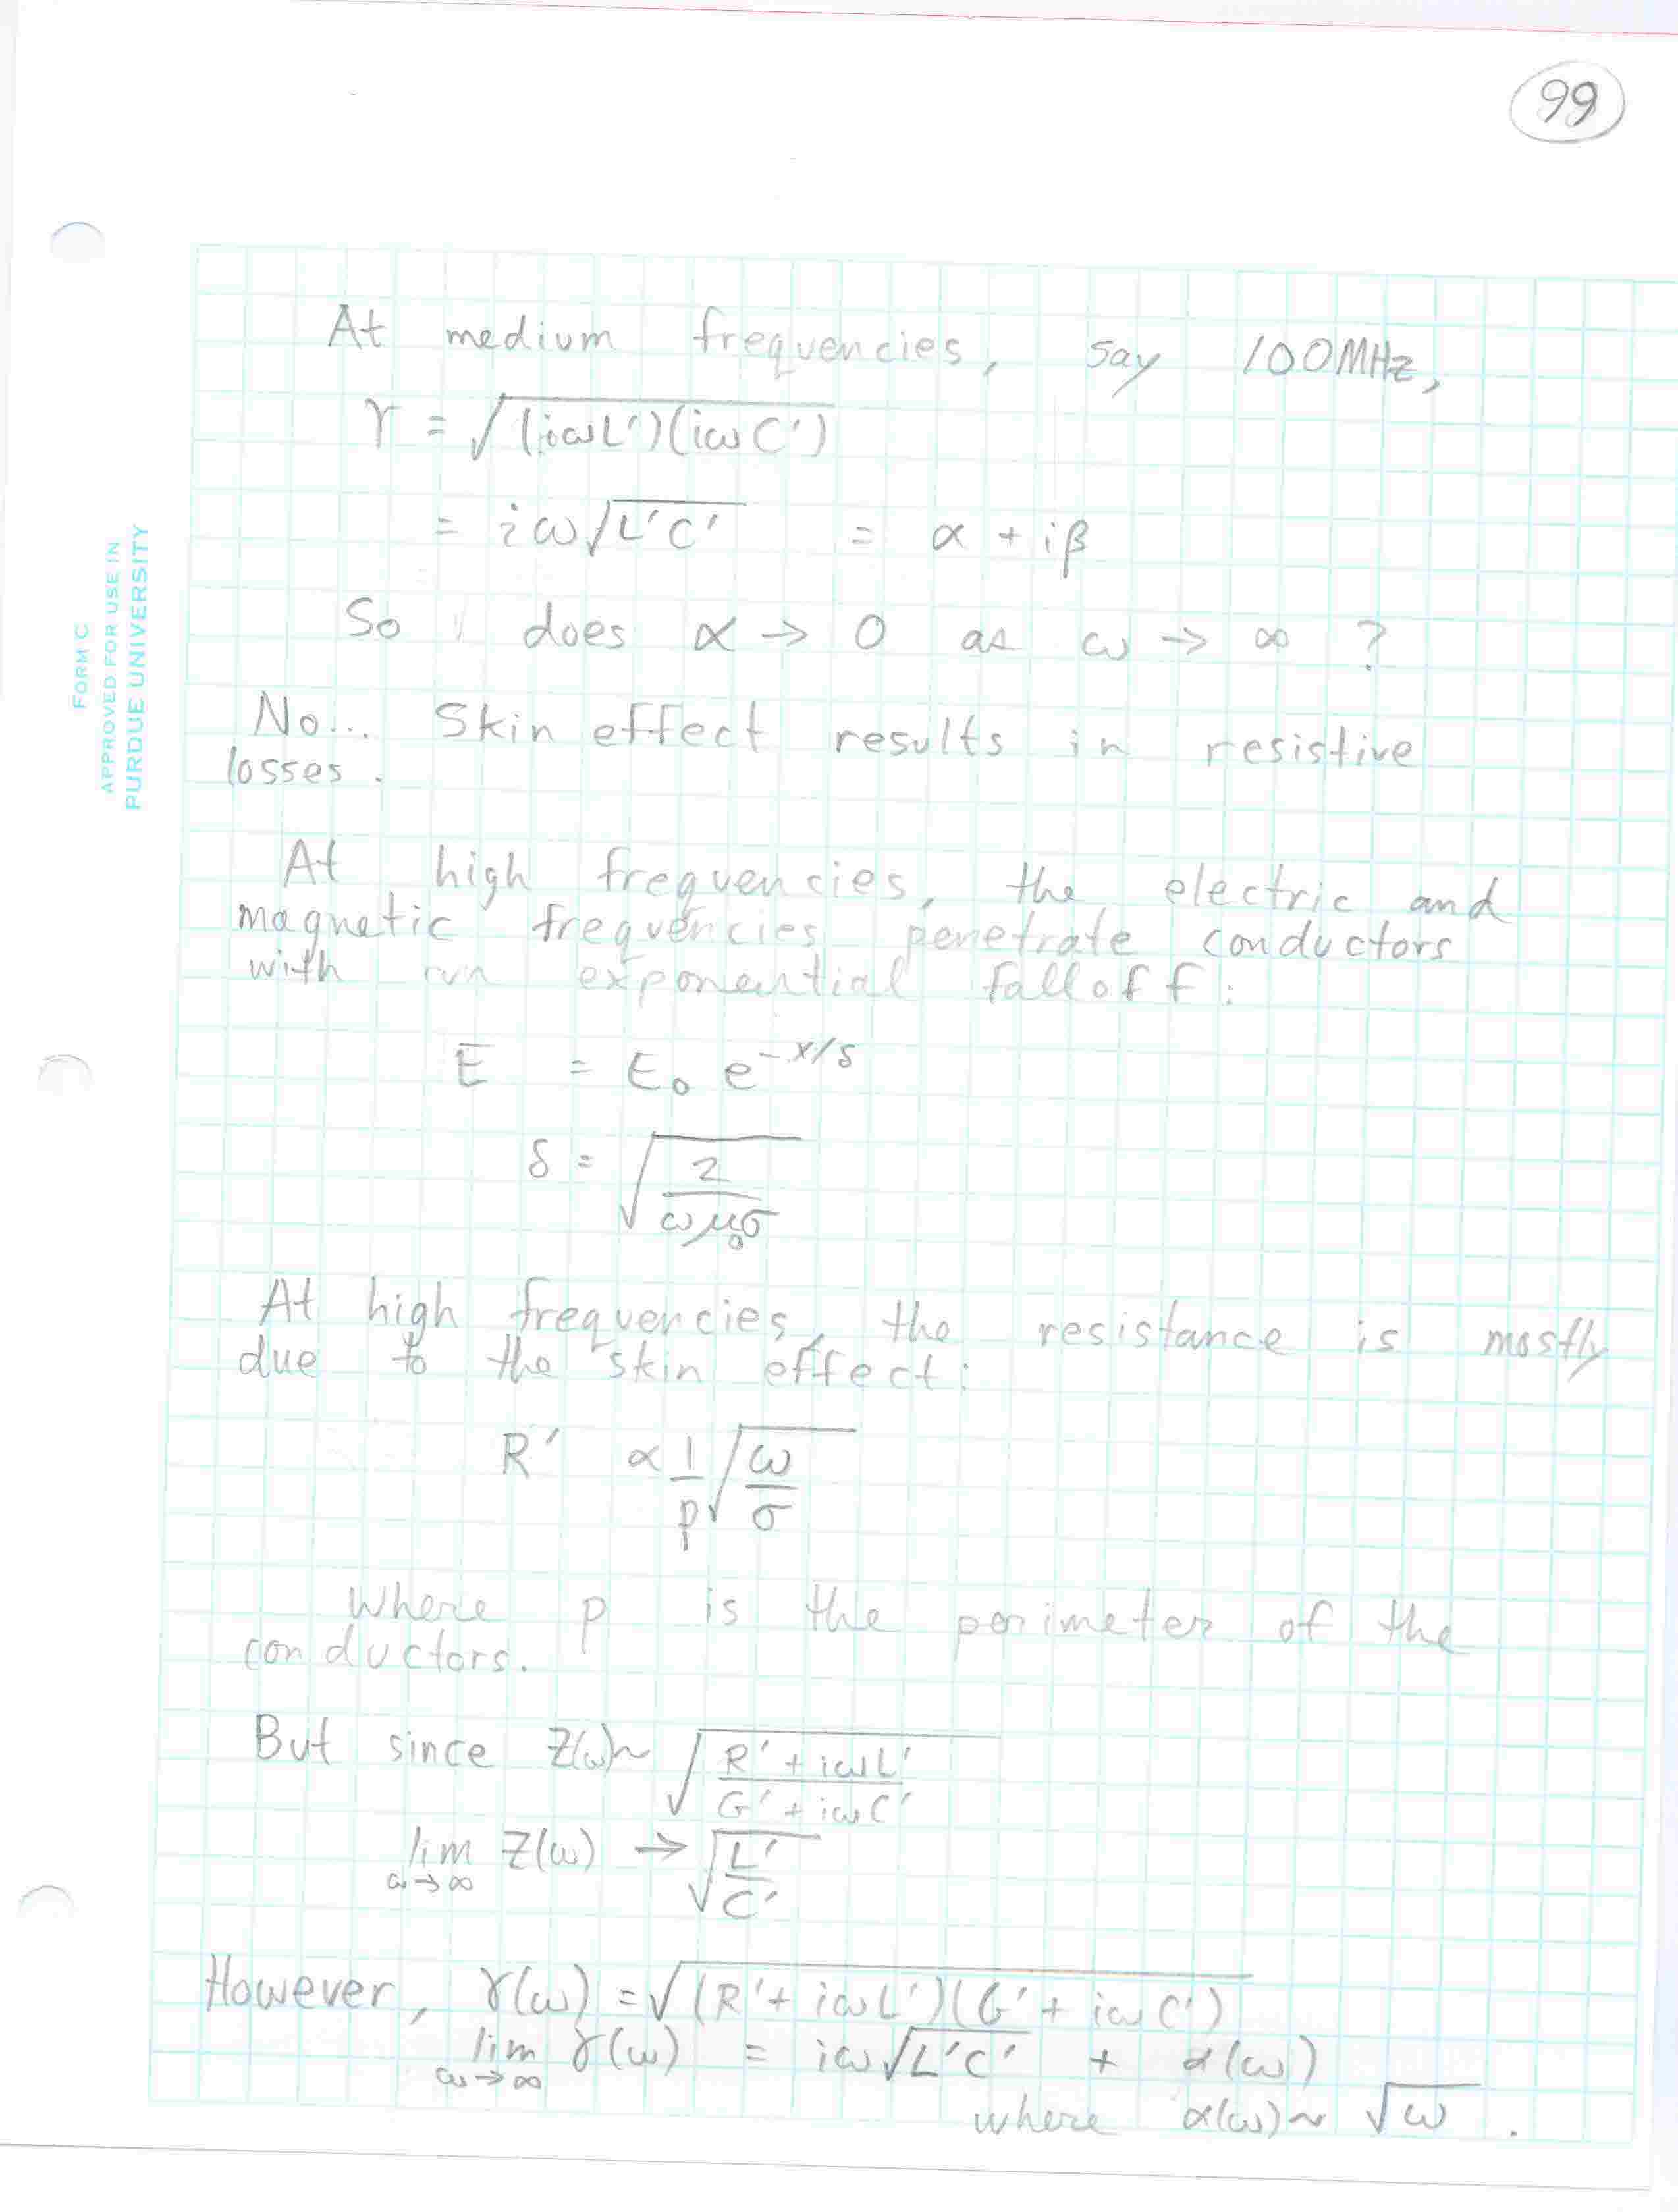 99
FORM C
APPROVED FOR USE IN
PURDUE UNIVERSITY
At medium frequencies, say 100MHz,
γ = √((iωL')(iωC'))
= iω√(L'C') = α + iβ
So does α → 0 as ω → ∞ ?
No... Skin effect results in resistive
losses.
At high frequencies, the electric and
magnetic frequencies penetrate conductors
with exponential falloff:
E = E₀ e^(-x/δ)
δ = √(2/(ωμ₀σ))
At high frequencies, the resistance is mostly
due to the skin effect:
R' ∝ 1/p √(ω/σ)
Where p is the perimeter of the
conductors.
But since Z(ω)~ √((R' + iωL')/(G' + iωC'))
lim ω→∞ Z(ω) → √(L'/C')
However, γ(ω) = √((R' + iωL')(G' + iωC'))
lim ω→∞ γ(ω) = iω√(L'C') + α(ω)
where α(ω)~ √ω .